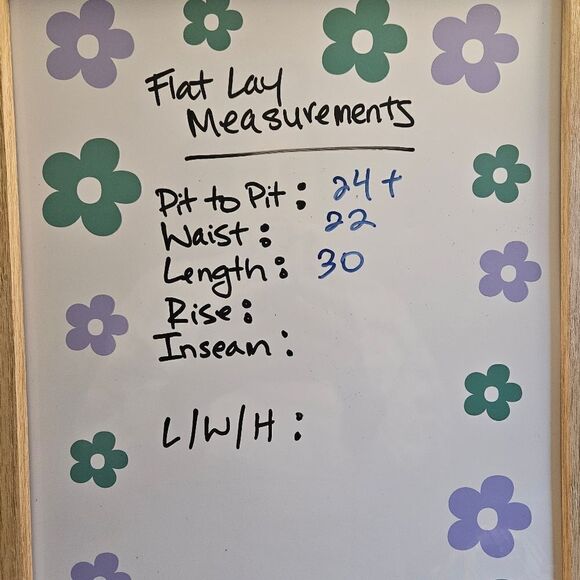 Flat Lay
Measurements
Pit to Pit: 24+
Waist: 22
Length: 30
Rise:
Inseam:
L/W/H: